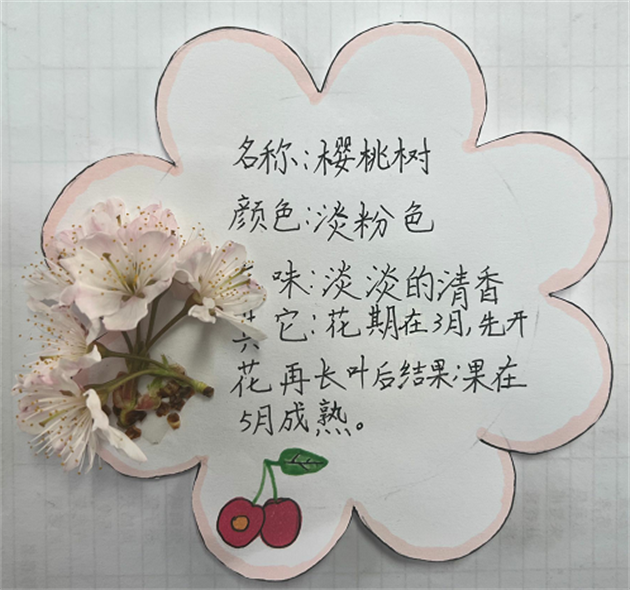 名称:樱桃树
颜色:淡粉色
味:淡淡的清香
其它:花期在3月,先开
花再长叶后结果;果在
5月成熟。